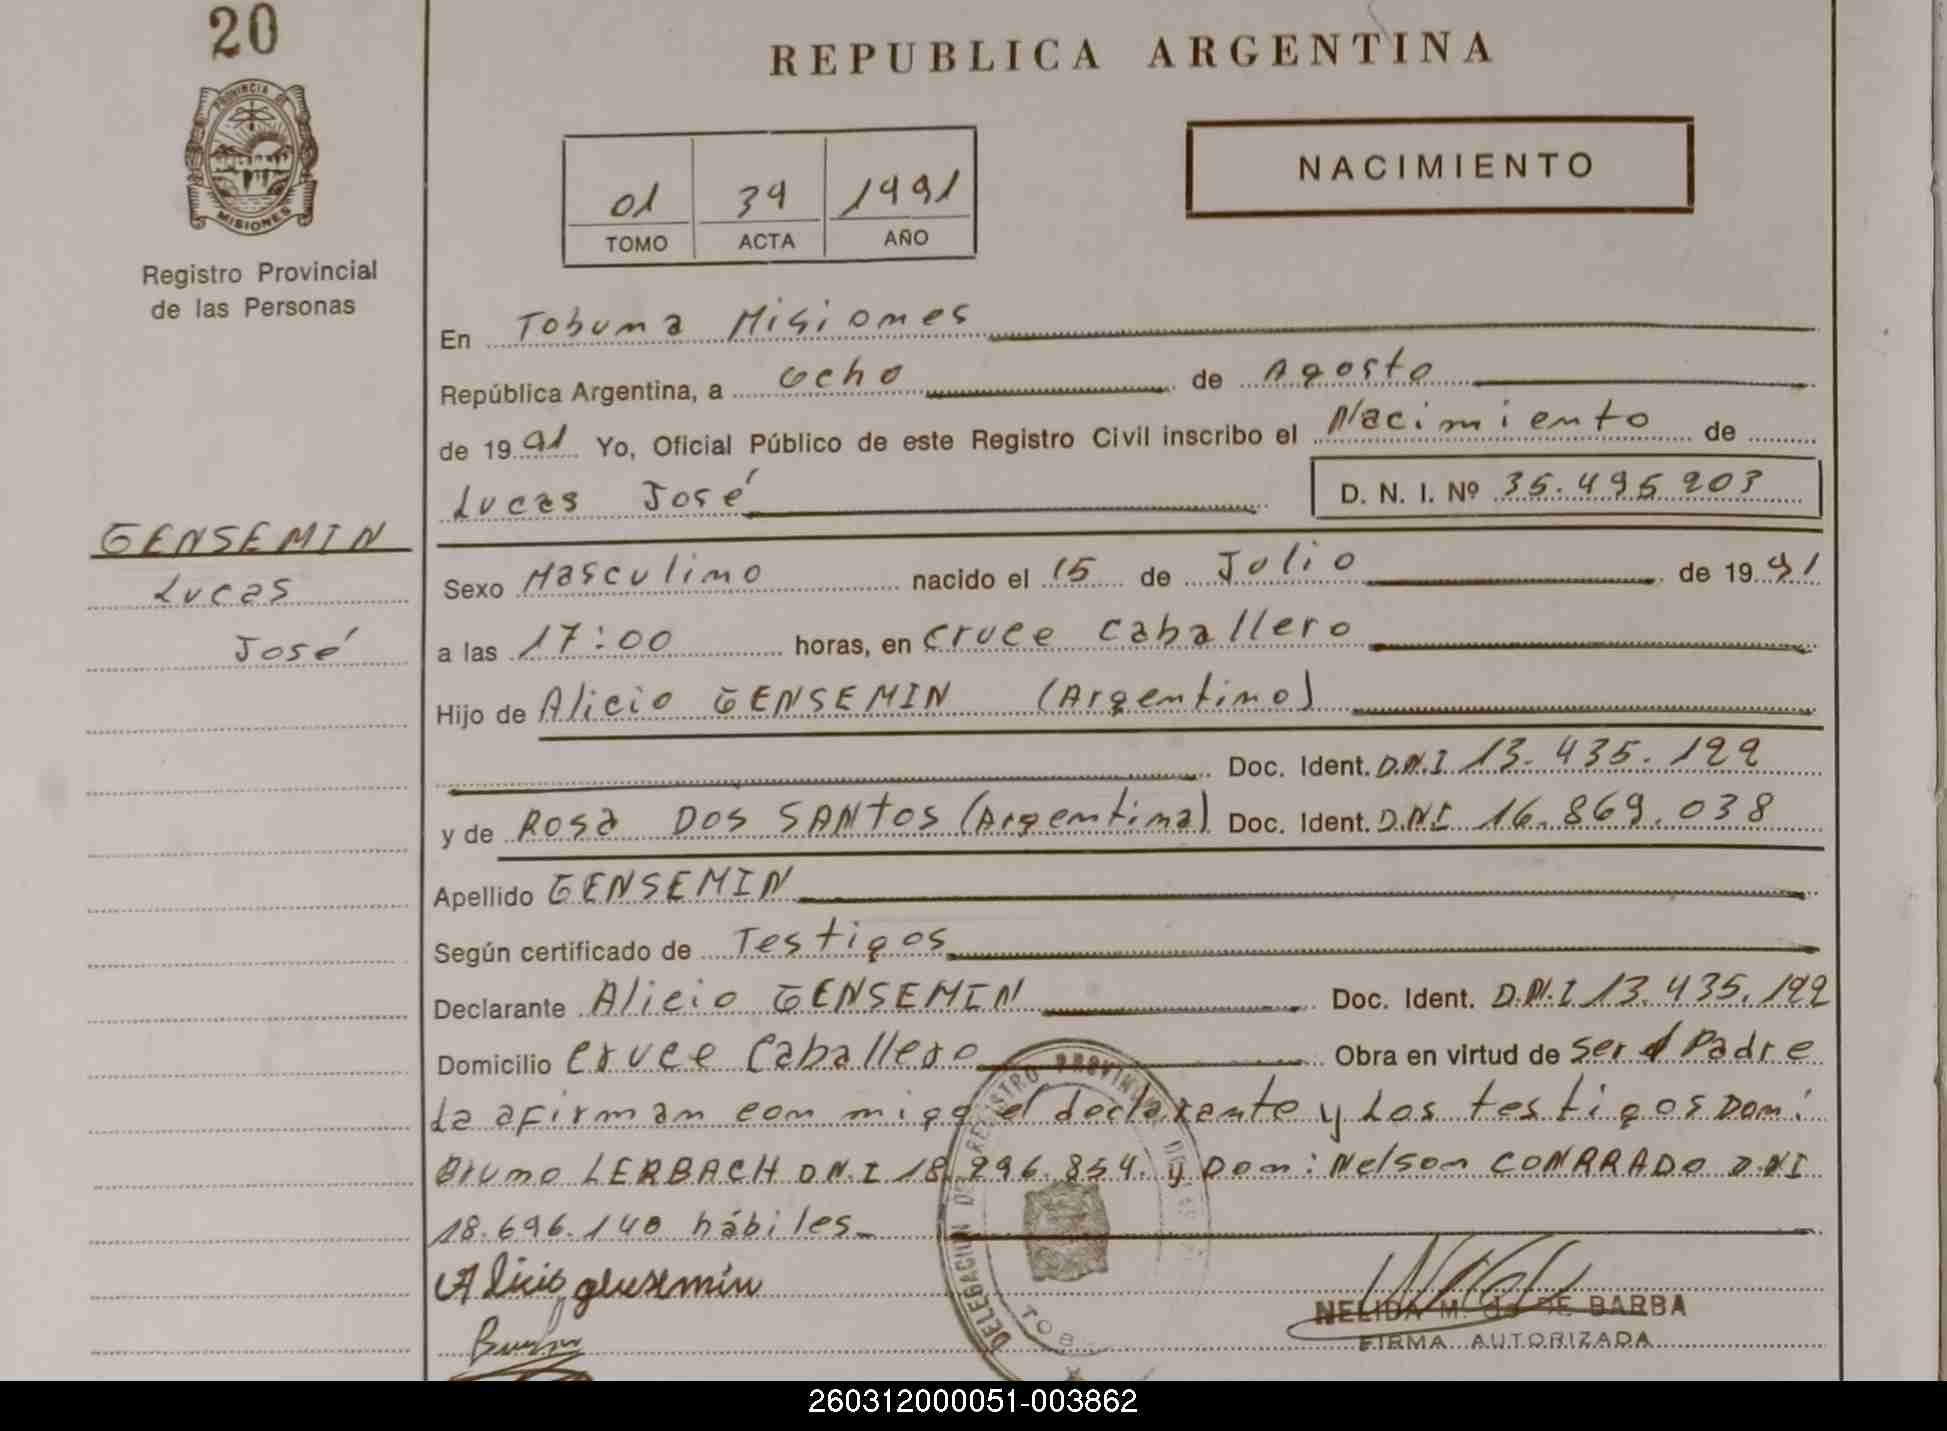 20
REPUBLICA ARGENTINA
PROVINCIA DE
MISIONES
Registro Provincial
de las Personas
NACIMIENTO
01 39 1991
TOMO ACTA AÑO
En Tobuna Misiones
República Argentina, a Ocho de Agosto
de 1991 Yo, Oficial Público de este Registro Civil inscribo el Nacimiento de
Lucas José D. N. I. Nº 35.495203
GENSEMIN
Lucas
José
Sexo Masculino nacido el 15 de Julio de 1991
a las 17:00 horas, en Cruce Caballero
Hijo de Alicio GENSEMIN (Argentino)
Doc. Ident. D.N.I 13.435.122
y de Rosa DOS SANTOS (Argentina) Doc. Ident. D.N.I 16.869.038
Apellido GENSEMIN
Según certificado de Testigos
Declarante Alicio GENSEMIN Doc. Ident. D.N.I 13.435.122
Domicilio Cruce Caballero Obra en virtud de ser el Padre
La afirman con migo el declarante y Los testigos Don:
Bruno LERBACH D.N.I 18.296.854. y Don: Nelson CONRRADO D.NI
18.696.140 hábiles
Alicio gensemin
NELIDA M. de BARBA
FIRMA AUTORIZADA
DELEGACION DE REGISTRO PROVINCIAL DE
260312000051-003862